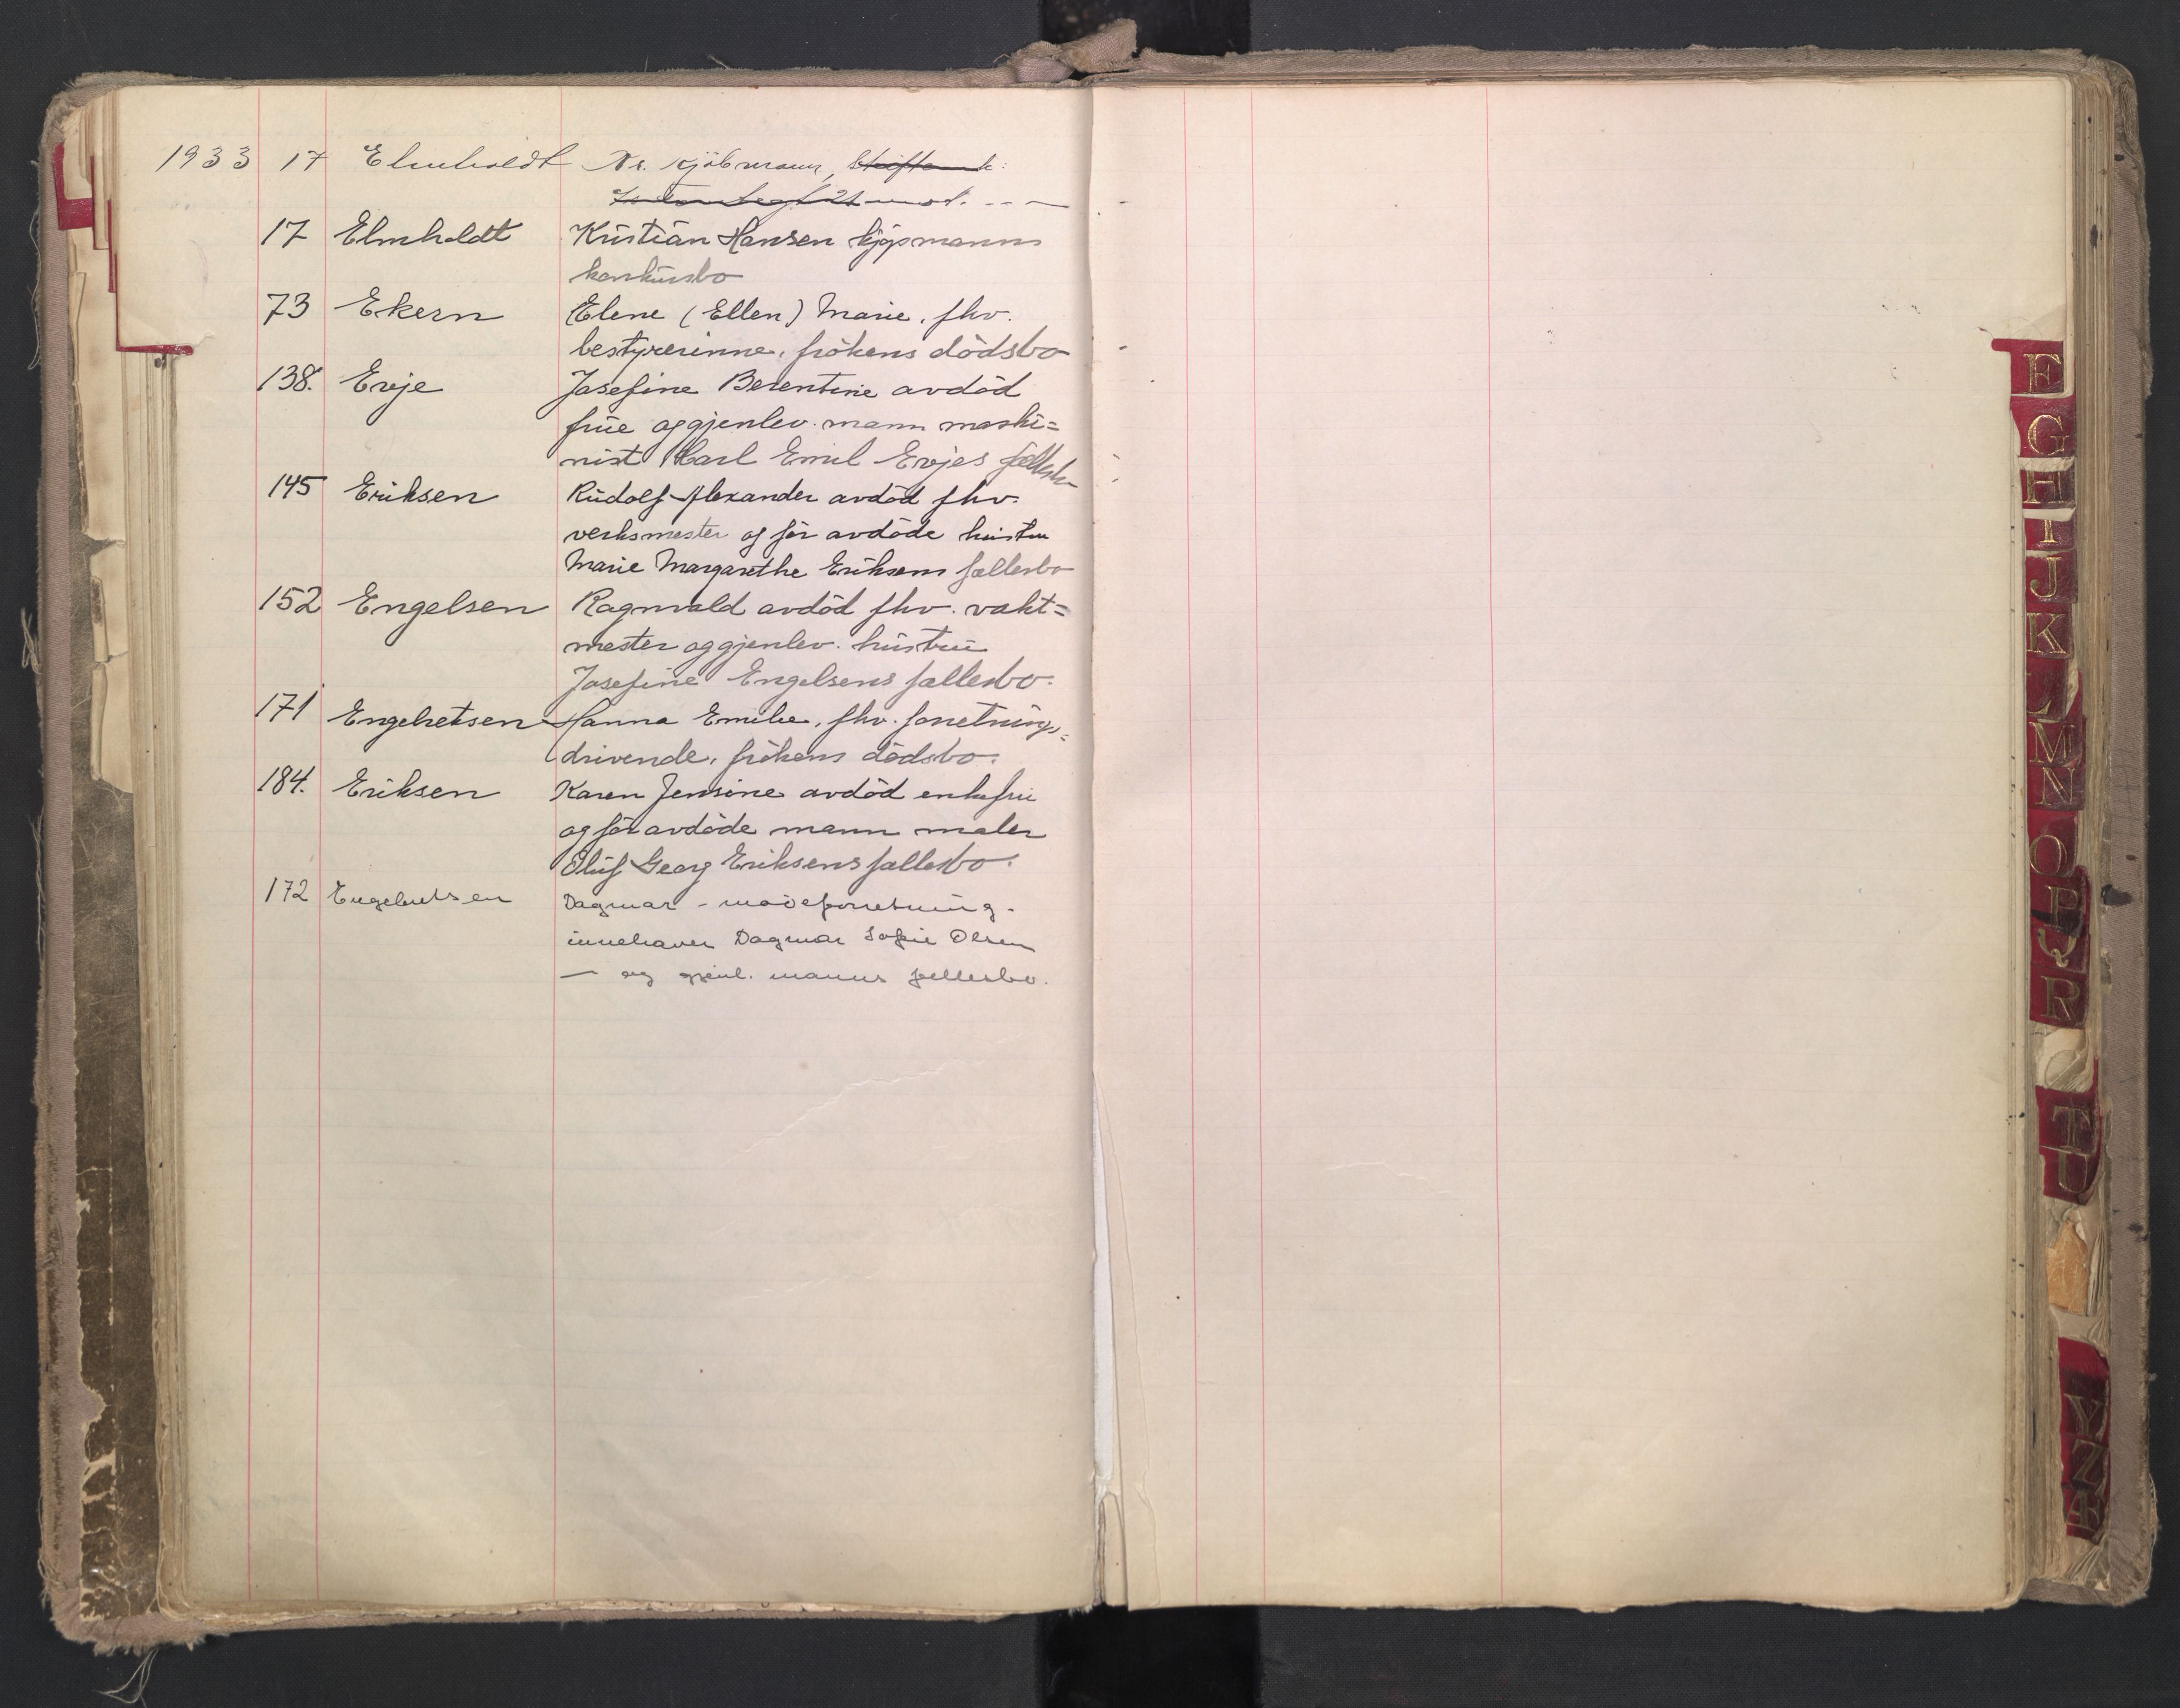 1933 17 Elmholdt Kr. kjöbmann,
17 Elmholdt Kristian Hansen kjøpmanns
konkursbo
73 Ekern Elene (Ellen) Marie, fhv.
bestyrerinne, frökens dödsbo
138. Evje Josefine Berentine avdöd
frue og gjenlev. mann maski=
nist Carl Emil Evjes fellesbo
145 Eriksen Rudolf Alexander avdöd fhv.
verksmester og för avdöde hustru
Marie Margarethe Eriksens fellesbo
152 Engelsen Ragnvald avdöd fhv. vakt=
mester og gjenlev. hustru
Josefine Engelsens fellesbo.
171 Engebretsen Hanna Emilie, fhv. forretnings=
drivende, frökens dödsbo.
184. Eriksen Karen Jensine avdöd enkefru
og för avdöde mann maler
Oluf Georg Eriksens fellesbo.
172 Engebretsen Dagmar - moteforretning-
innehaver Dagmar Sofie Olsen
— og gjenl. manns fellesbo.
F
G
H
I
J
K
L
M
N
O
P
Q
R
T
U
Y
Z